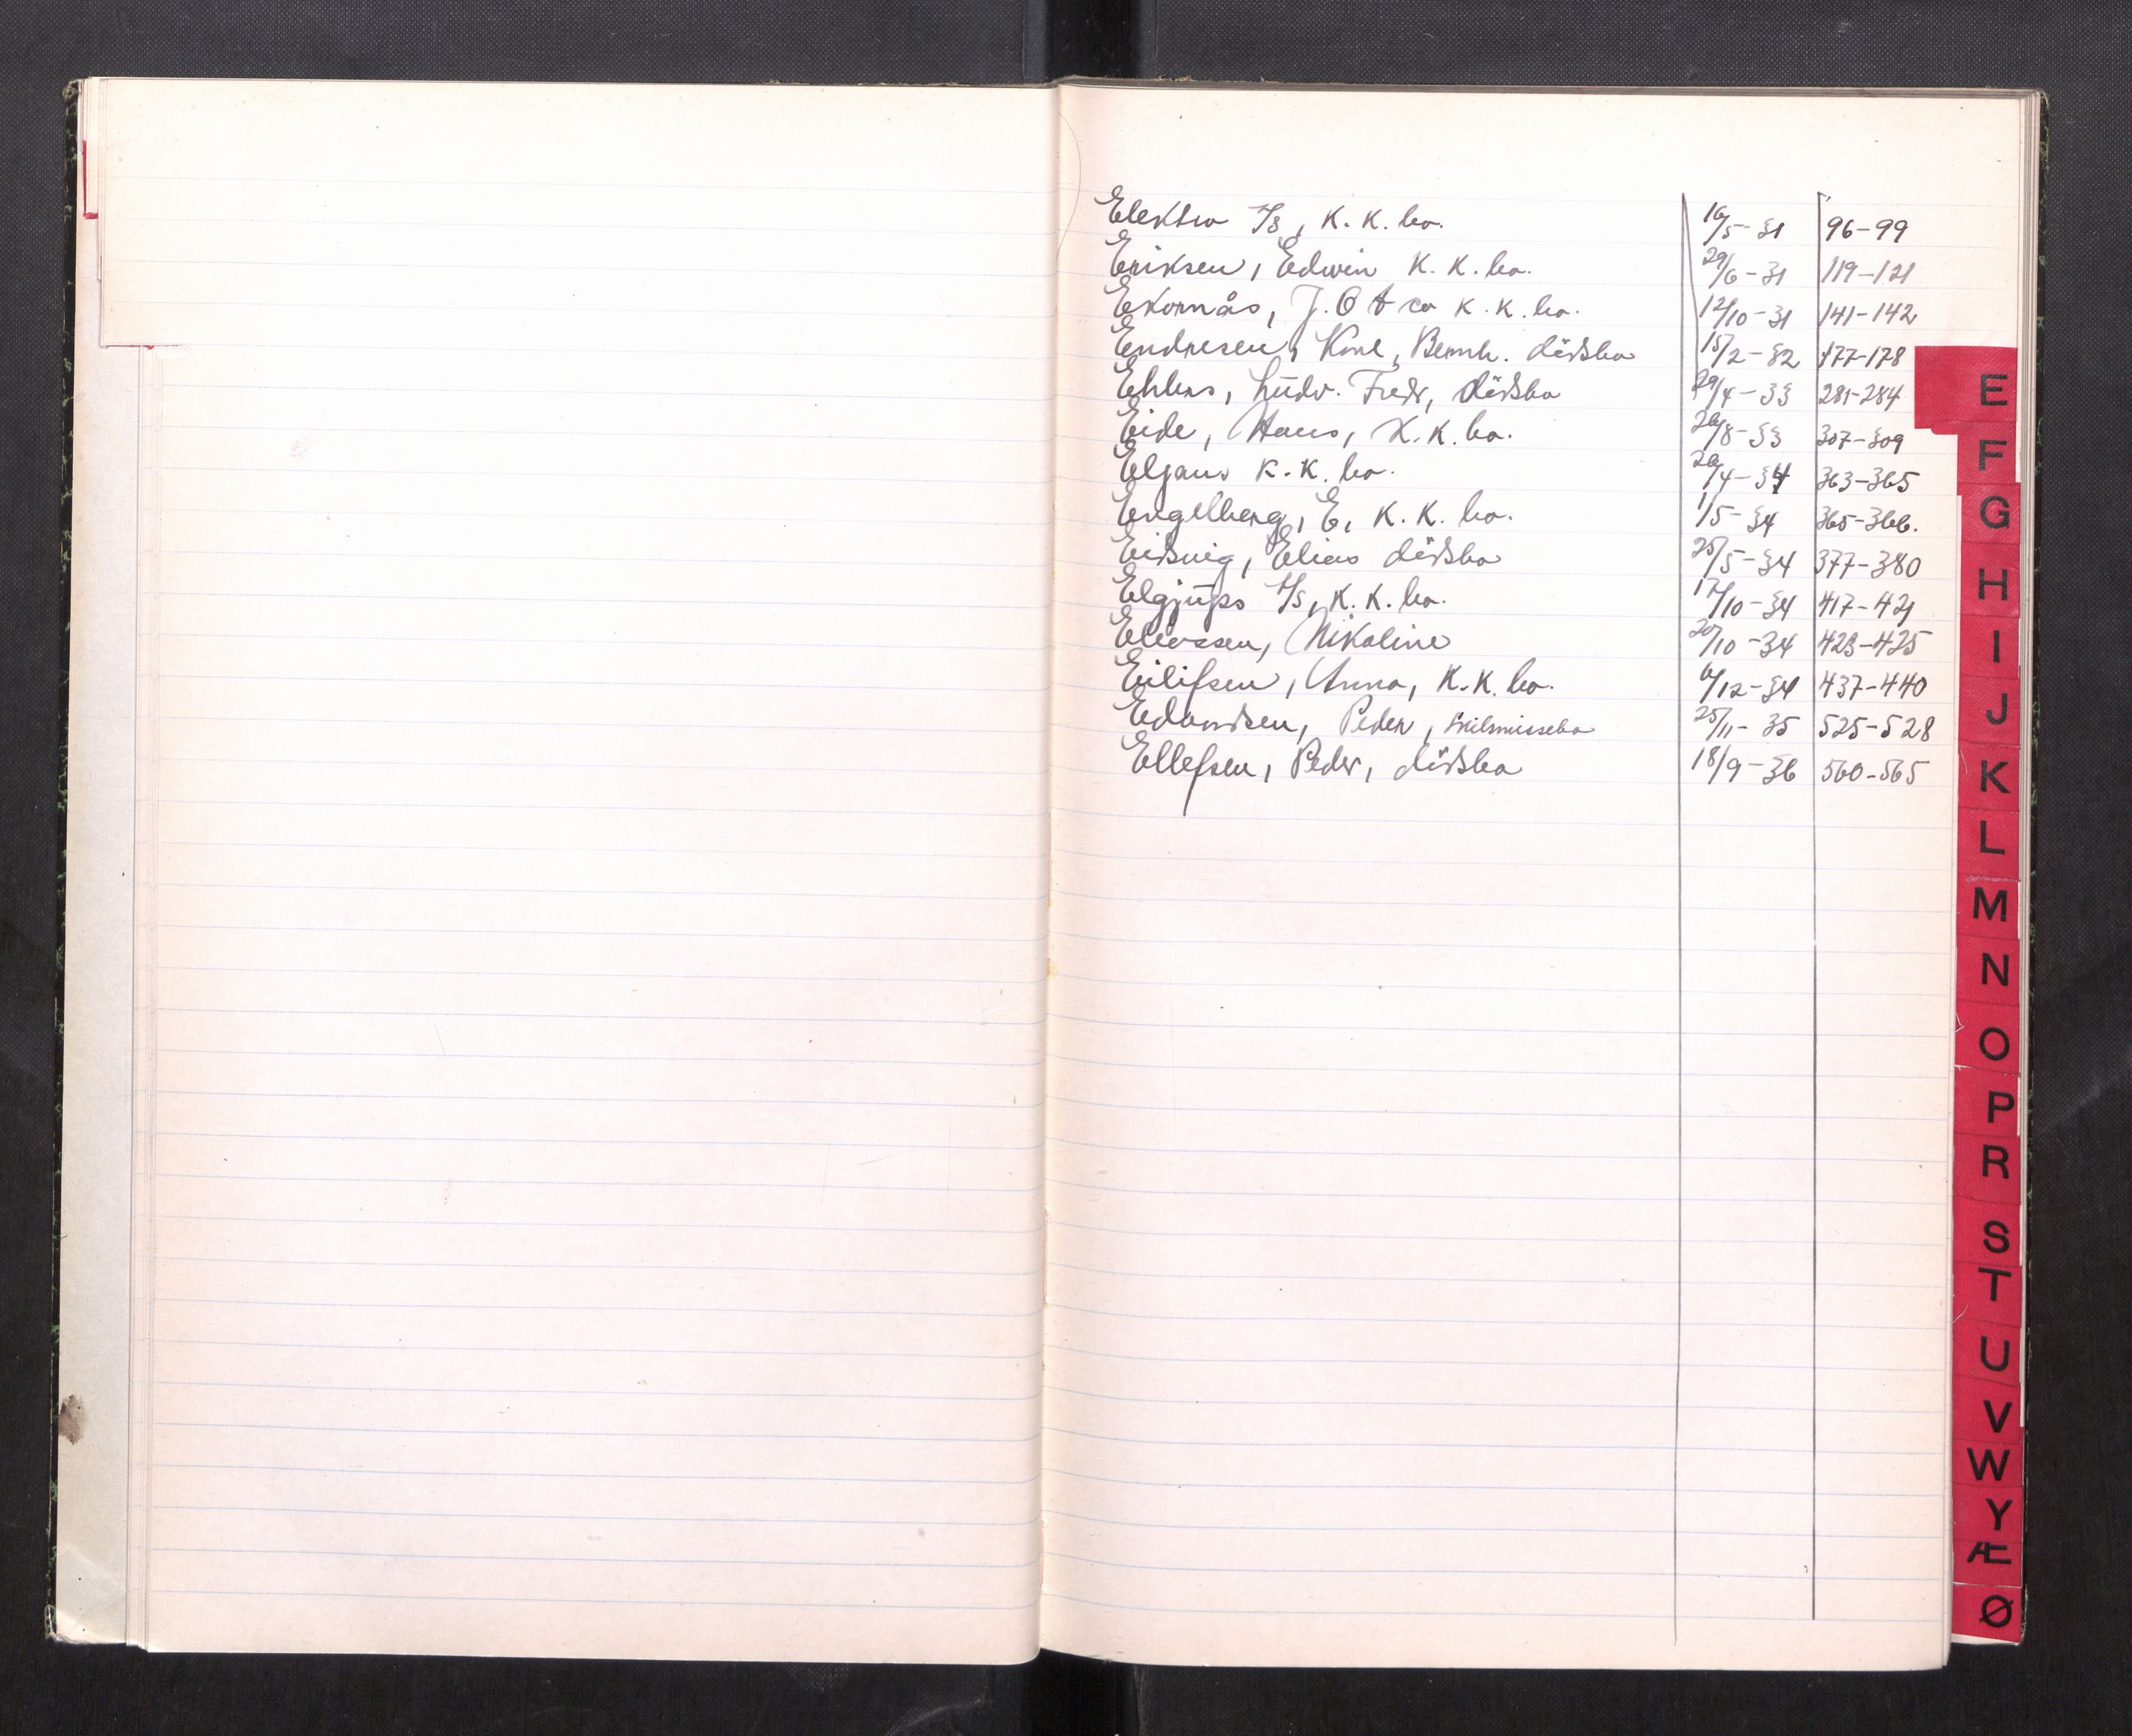 Elektro A/S, K.K. bo. 16/5-31 96-99
Eriksen, Edwin K.K. bo. 29/6-31 119-121
Ekornås, J.O & co K.K. bo. 12/10-31 141-142
Endresen, Karl, Bernh. dødsbo 15/2-32 177-178
Ehlers, Ludv. Fredr, dødsbo 29/4-33 281-284
Eide, Hans, K.K. bo. 26/8-33 307-309
Eljans K.K. bo. /4-34 363-365
Engelberg, E, K.K. bo. 1/5-34 365-366.
Eidsvig, Elias dødsbo 25/5-34 377-380
A/S, K.K. bo. 17/10-34 417-421
Nikoline 20/10-34 423-425
Eilifsen, Anna, K.K. bo. 6/12-34 437-440
Peder, skilsmissebo 25/11-35 525-528
Ellefsen, Peder, dødsbo 18/9-36 560-565
E
F
G
H
I
J
K
L
M
N
O
P
R
S
T
U
V
W
Y
Æ
Ø